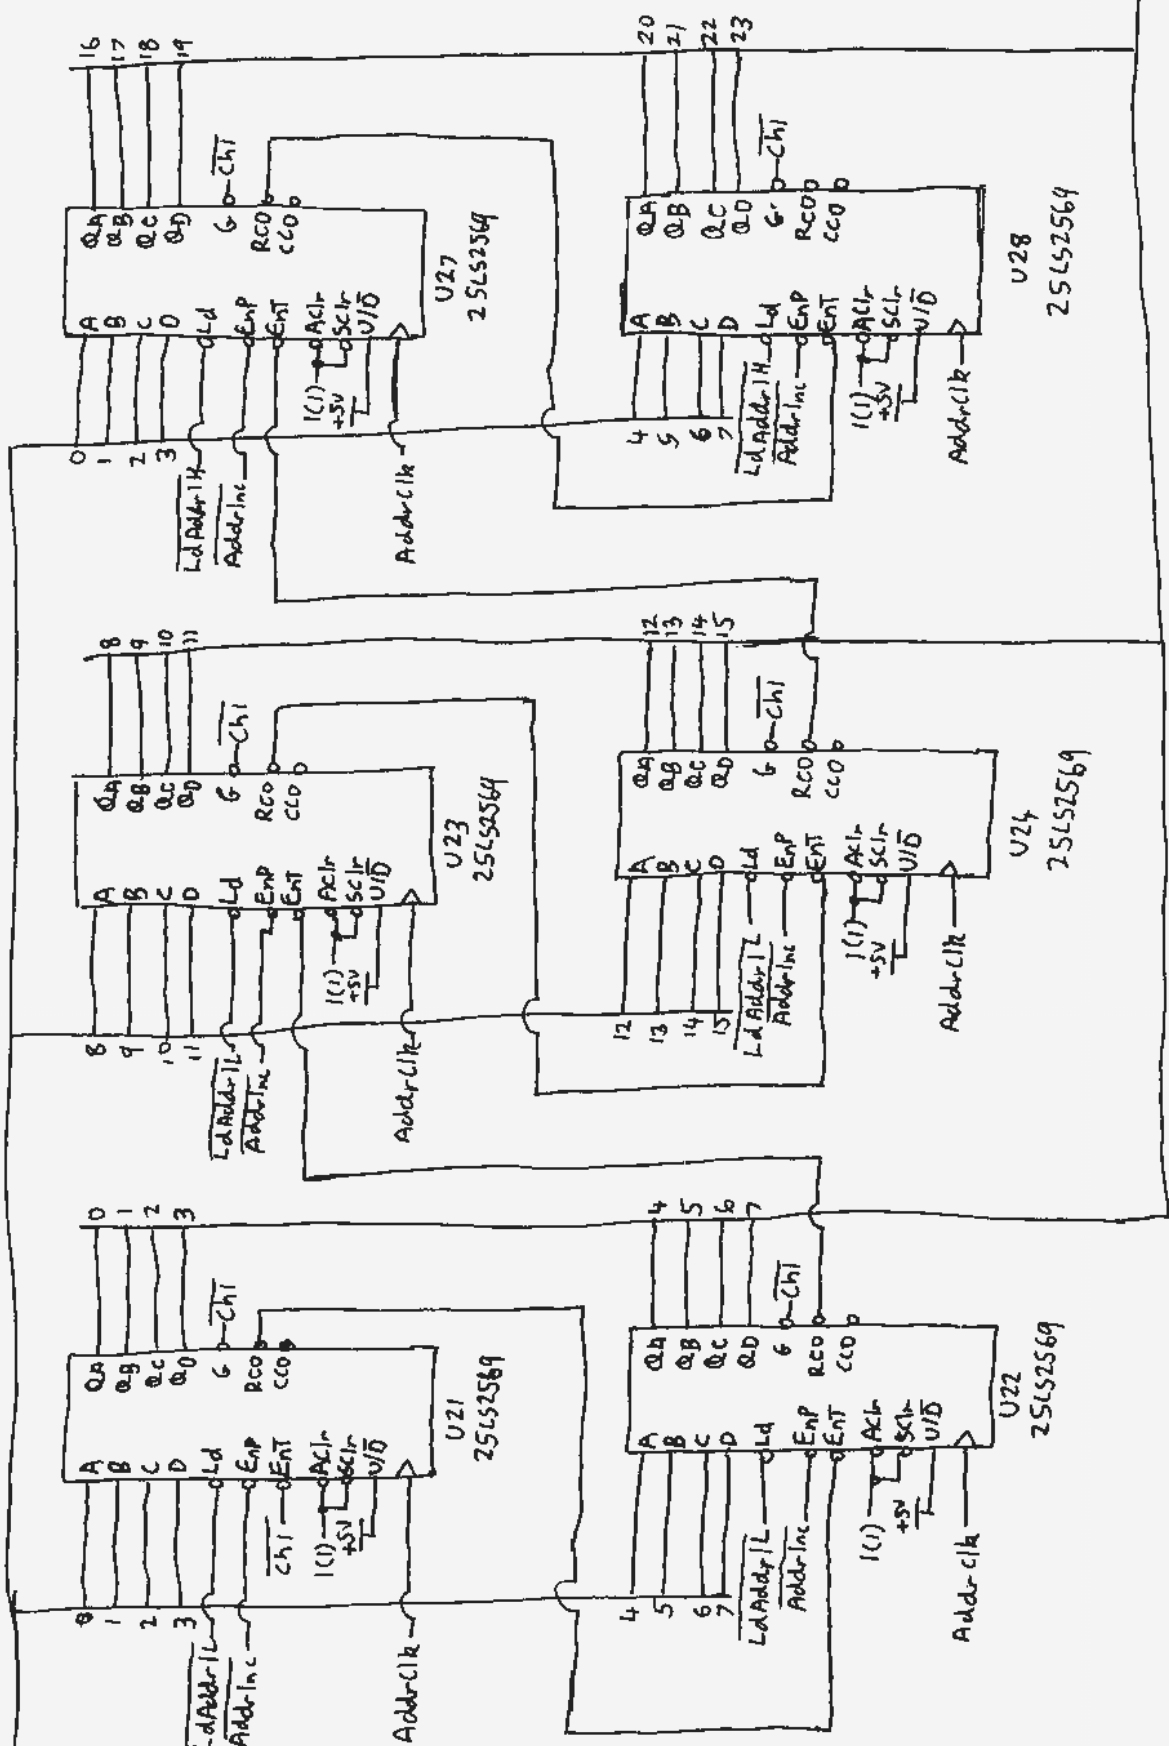 16 17 18 19
QA QB QC QD
G
Ch1
RCO
CCO
A B C D
Ld
EnP
EnT
AClr
SClr
U/D
U27
25LS2569
0 1 2 3
LdAddr1H
AddrInc
1(1)
+5V
AddrClk
20 21 22 23
QA QB QC QD
G
Ch1
RCO
CCO
A B C D
Ld
EnP
EnT
AClr
SClr
U/D
U28
25LS2569
4 5 6 7
LdAddr1H
AddrInc
1(1)
+5V
AddrClk
8 9 10 11
QA QB QC QD
G
Ch1
RCO
CCO
A B C D
Ld
EnP
EnT
AClr
SClr
U/D
U23
25LS2569
8 9 10 11
LdAddr1L
AddrInc
1(1)
+5V
AddrClk
12 13 14 15
QA QB QC QD
G
Ch1
RCO
CCO
A B C D
Ld
EnP
EnT
AClr
SClr
U/D
U24
25LS2569
12 13 14 15
LdAddr1L
AddrInc
1(1)
+5V
AddrClk
0 1 2 3
QA QB QC QD
G
Ch1
RCO
CCO
A B C D
Ld
EnP
EnT
AClr
SClr
U/D
U21
25LS2569
0 1 2 3
LdAddr1L
AddrInc
Ch1
1(1)
+5V
AddrClk
4 5 6 7
QA QB QC QD
G
Ch1
RCO
CCO
A B C D
Ld
EnP
EnT
AClr
SClr
U/D
U22
25LS2569
4 5 6 7
LdAddr1L
AddrInc
1(1)
+5V
AddrClk